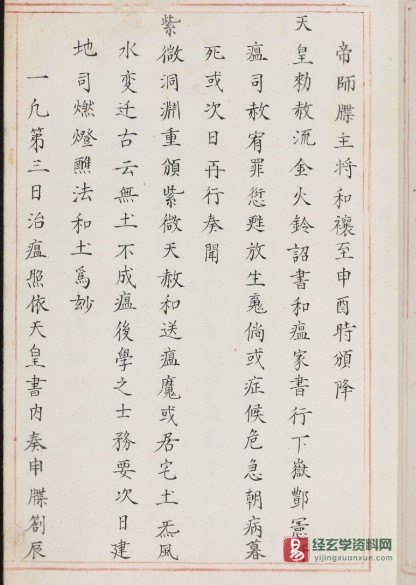 帝師牒主将和禳至申酉時頒降
天皇勅赦流金火鈴詔書和瘟家書行下嶽酆冤
瘟司赦宥罪愆甦放生䰟倘或症候危急朝病暮
死或次日再行奏聞
紫微洞渊重頒紫微天赦和送瘟魔或居宅土炁風
水变迁古云無土不成瘟後學之士務要次日建
地司燃燈醮法和土爲妙
一凢第三日治瘟照依天皇書内奏申牒劄辰
经玄学资料网
yijingxuanxue.com